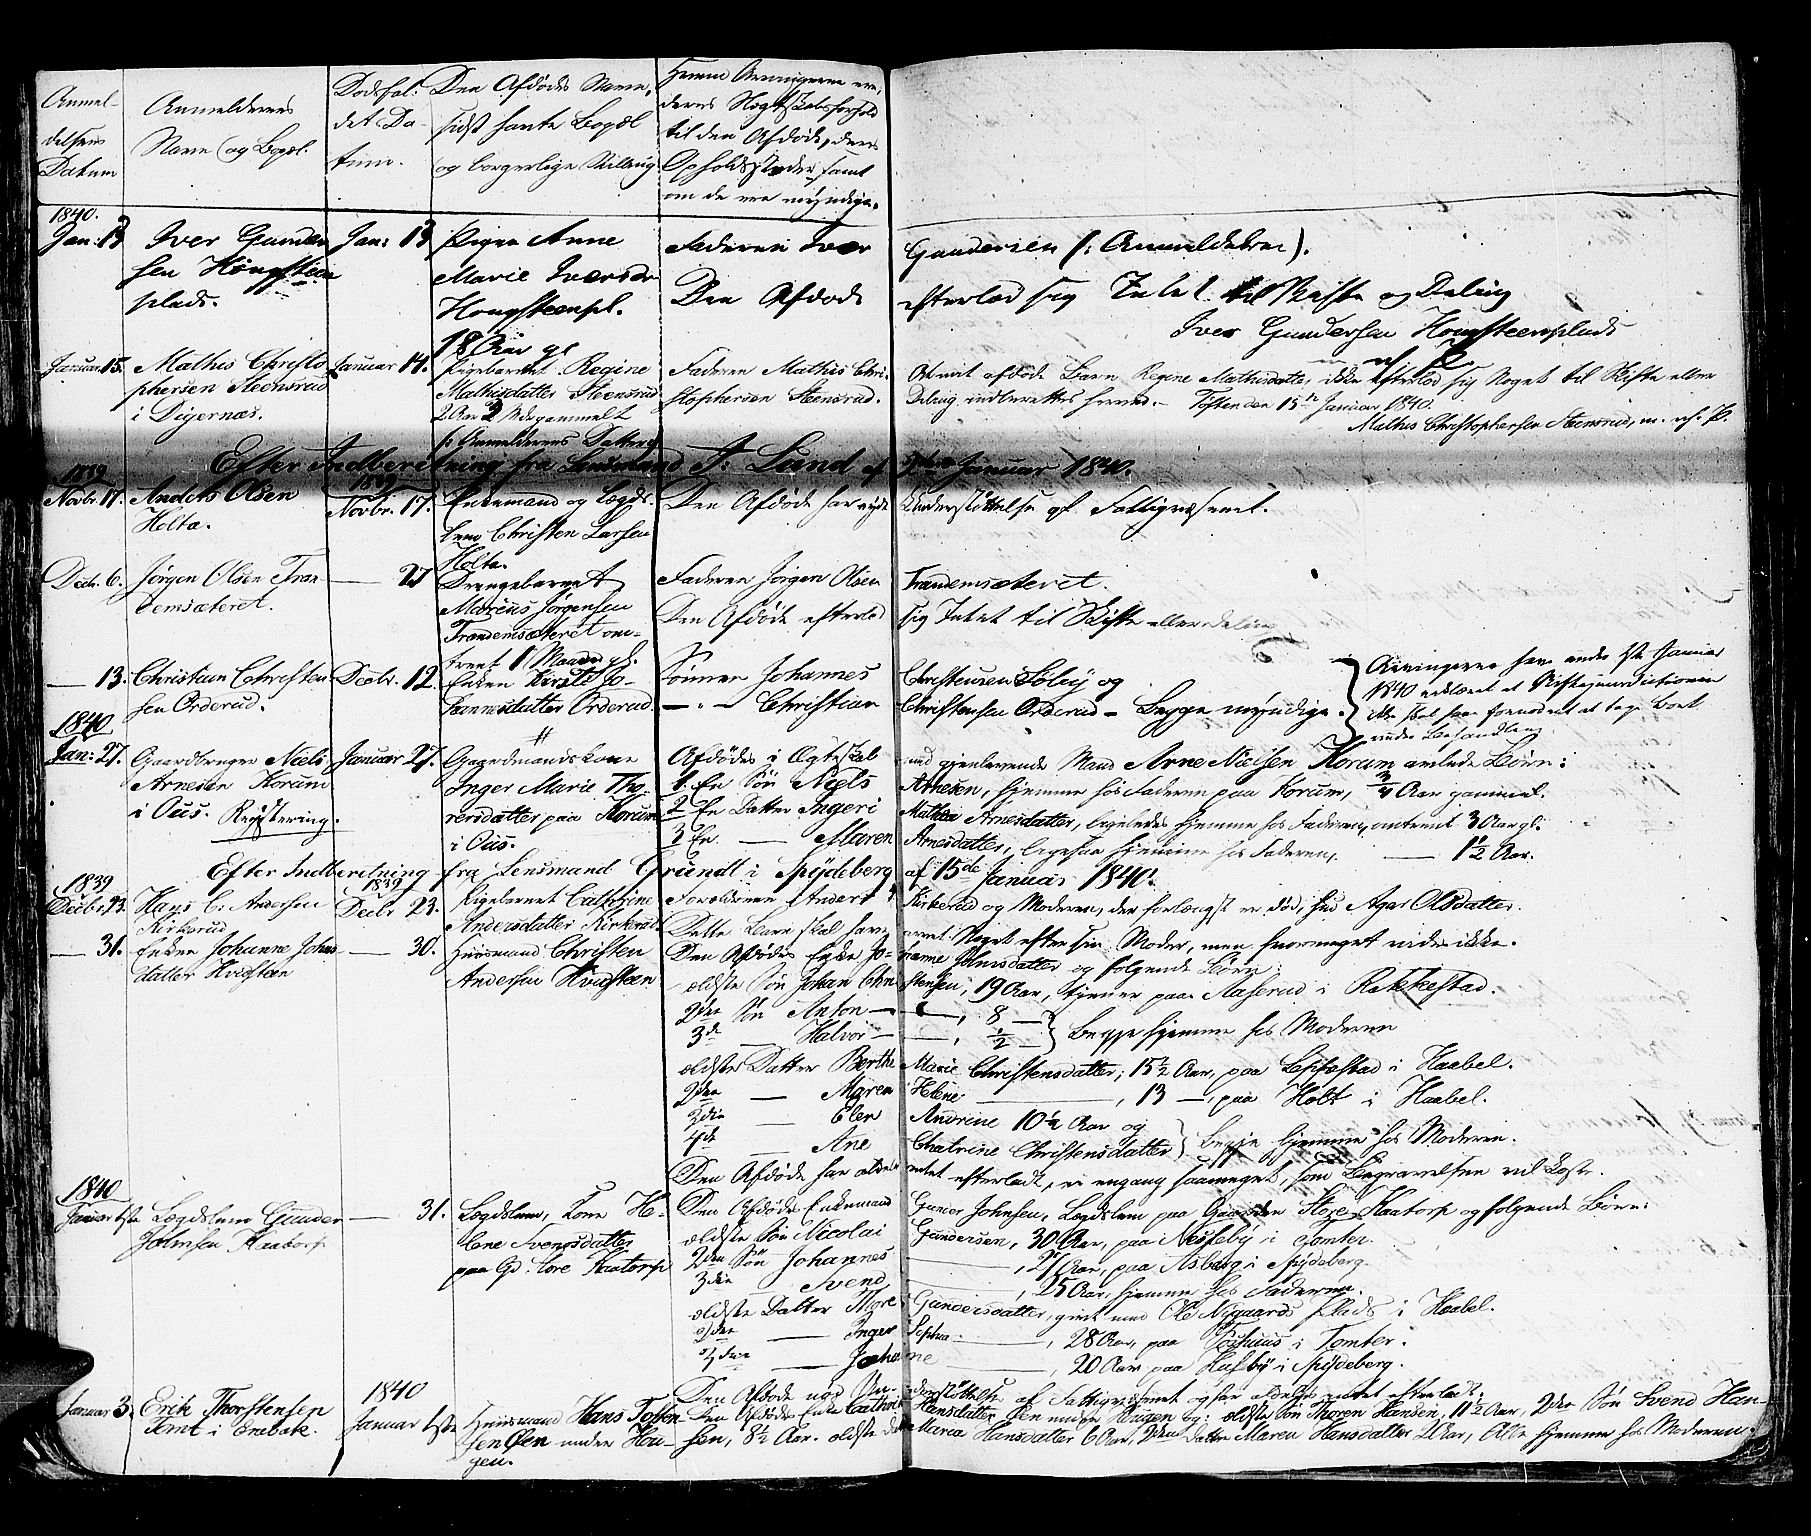 Anmel-
delsens
Datum
Anmelderens
Navn og Bopæl.
Dødsfal-
det Da-
tum.
Den Afdødes Navn,
sidst havte Bopæl
og borgerlige Stilling
Hvem Arvingerne ere,
deres Slægtskabsforhold
til den Afdøde, deres
Opholdssteder, samt
om de ere myndige.
1840.
Jan: 13
Iver Gunder
sen Hougsteen
plads.
Jan: 13
Pigen Anne
Marie Iversdr
Hougsteenpl.
18 Aar gl
Faderen Iver Gundersen (: Anmelderen).
Den Afdøde efterlod sig Intet til Skifte og Deling
Iver Gundersen Hougsteenplads
m. ef. P.
Januar 15.
Mathis Christo
phersen Steensrud
i Digernæs.
Januar 14.
Pigebarnet Regine
Mathisdatter Steensrud
2 Aar gammelt
/: Anmelderens Datter
Faderen Mathis Chri-
stophersen Steensrud.
At mit afdøde Barn Regine Mathisdatter ikke efterlod sig Noget til Skifte eller
Deling indberettes herved. - Tosten den 15de Januar 1840.
Mathis Christophersen Steensrud, m. ef. P.
Efter Indberetning fra Lensmand T: Lund af Januar 1840.
1839
Novbr. 17.
Anders Olsen
Holta.
1839
Novbr. 17.
Enkemand og Lægds-
lem Christen Larsen
Holta.
Den Afdøde har nydt Understøttelse af Fattigvæsenet.
Decbr. 6.
Jørgen Olsen Tran-
demsæteret.
— 27
Drengebarnet
Marius Jørgensen
Trandemsæteret om-
trent 1 Maaned gl.
Faderen Jørgen Olsen Trandemsæteret.
Den Afdøde efterlod sig Intet til Skifte eller Deling
— 13.
Christian Christen
sen Orderud.
Decbr. 12.
Enken Kirsti Jo-
hannesdatter Orderud
Sønnen Johannes Christensen Solby og
— „ — Christian Christensen Orderud — Begge myndige.
Arvingerne have under Januar
1840 erklæret at Skiftejurisdictionen
ikke skal have fornødent at tage Boet
under Behandling
1840
Jan: 27.
Gaardbruger Niels
Arnesen Horum
i Ous. Registering.
Januar 27.
Gaardmandskone
Inger Marie Tho-
rersdatter paa Horum
i Ous.
Afdødes i Ægteskab med gjenlevende Mand Arne Nielsen Horum avlede Børn:
1. En Søn Niels Arnesen, hjemme hos Faderen paa Horum, 3/4 Aar gammel.
2 En Datter Ingeri Mathea Arnesdatter, ligeledes hjemme hos Faderen, omtrent 3 Aar gl.
3 En — Maren Arnesdatter, ligesaa hjemme hos Faderen, — 1 1/2 Aar.
Efter Indberetning fra Lensmand Grundt i Spydeberg af 15de Januar 1840.
1839
Decbr. 23.
Hans C. Andersen
Kirkerud
1839
Decbr 23.
Pigebarnet Cathrine
Andersdatter Kirkerud.
Forældrene Anders Kirkerud og Moderen, der forlængst er død, hed Agar Olsdatter.
Dette Barn skal have arvet Noget efter sin Moder, men hvormeget vides ikke.
— 31.
Enken Johanne Johns
datter Hvidsteen
— 30.
Huusmand Christen
Andersen Hvidsteen
Den Afdødes Enke Jo-hanne Johnsdatter og følgende Børn:
ældste Søn Johan Christensen, 19 Aar, tjener paa Aaserud i Rakkestad.
2den Søn Anton — — , 8 —
3de — Halvor — — , 1/2 — } Begge hjemme hos Moderen
ældste Datter Berthe Marie Christensdatter, 15 1/2 Aar, paa Leftestad i Haabel.
2den — Maren Helene — , 13 —, paa Holt i Haabel.
3die — Elen Andrine 10 1/2 Aar og
4de — Ane Chatrine Christensdatter } begge hjemme hos Moderen.
Den Afdøde har aldeles intet efterladt, ei engang saameget, som Begravelsen vil koste.
1840
Januar 1ste
Lægdslem Gunder
Johnsen Kaatorp
— 31.
Lægdslem, Kone He-
lene Svensdatter
paa Gd. Store Kaatorp
Den Afdødes Enkemand Gunder Johnsen, Lægdslem paa Gaarden Store Kaatorp og følgende Børn:
ældste Søn Nicolai Gundersen, 30 Aar, paa Næseby i Tomter.
2den Søn Johannes — , 27 Aar, paa Asberg i Spydeberg.
3die — Svend — , 25 Aar, hjemme hos Faderen.
ældste Datter More Gundersdatter, givt med Ole Nygaards Plads i Haabel.
2den — Inger Sophia — , 28 Aar, paa i Tomter.
3die — Johanne — , 20 Aar paa Husby i Spydeberg.
Den Afdøde nød Understøttelse af Fattigvæsenet og har aldeles intet efterladt.
Januar 3.
Erik Thorstensen
Tomt i Enebak.
1840
Januar 1ste
Huusmand Hans Tosten
sen under Hou-
gen.
Den Afdødes Enke Cathrine Hansdatter Een under Haugen og: ældste Søn Thoren Hansen, 11 1/2 Aar, 2den Søn Svend Han-
sen, 8 1/2 Aar. ældste datter Maria Hansdatter 6 Aar, 2den datter Maren Hansdatter 2 Aar, Alle hjemme hos Moderen.